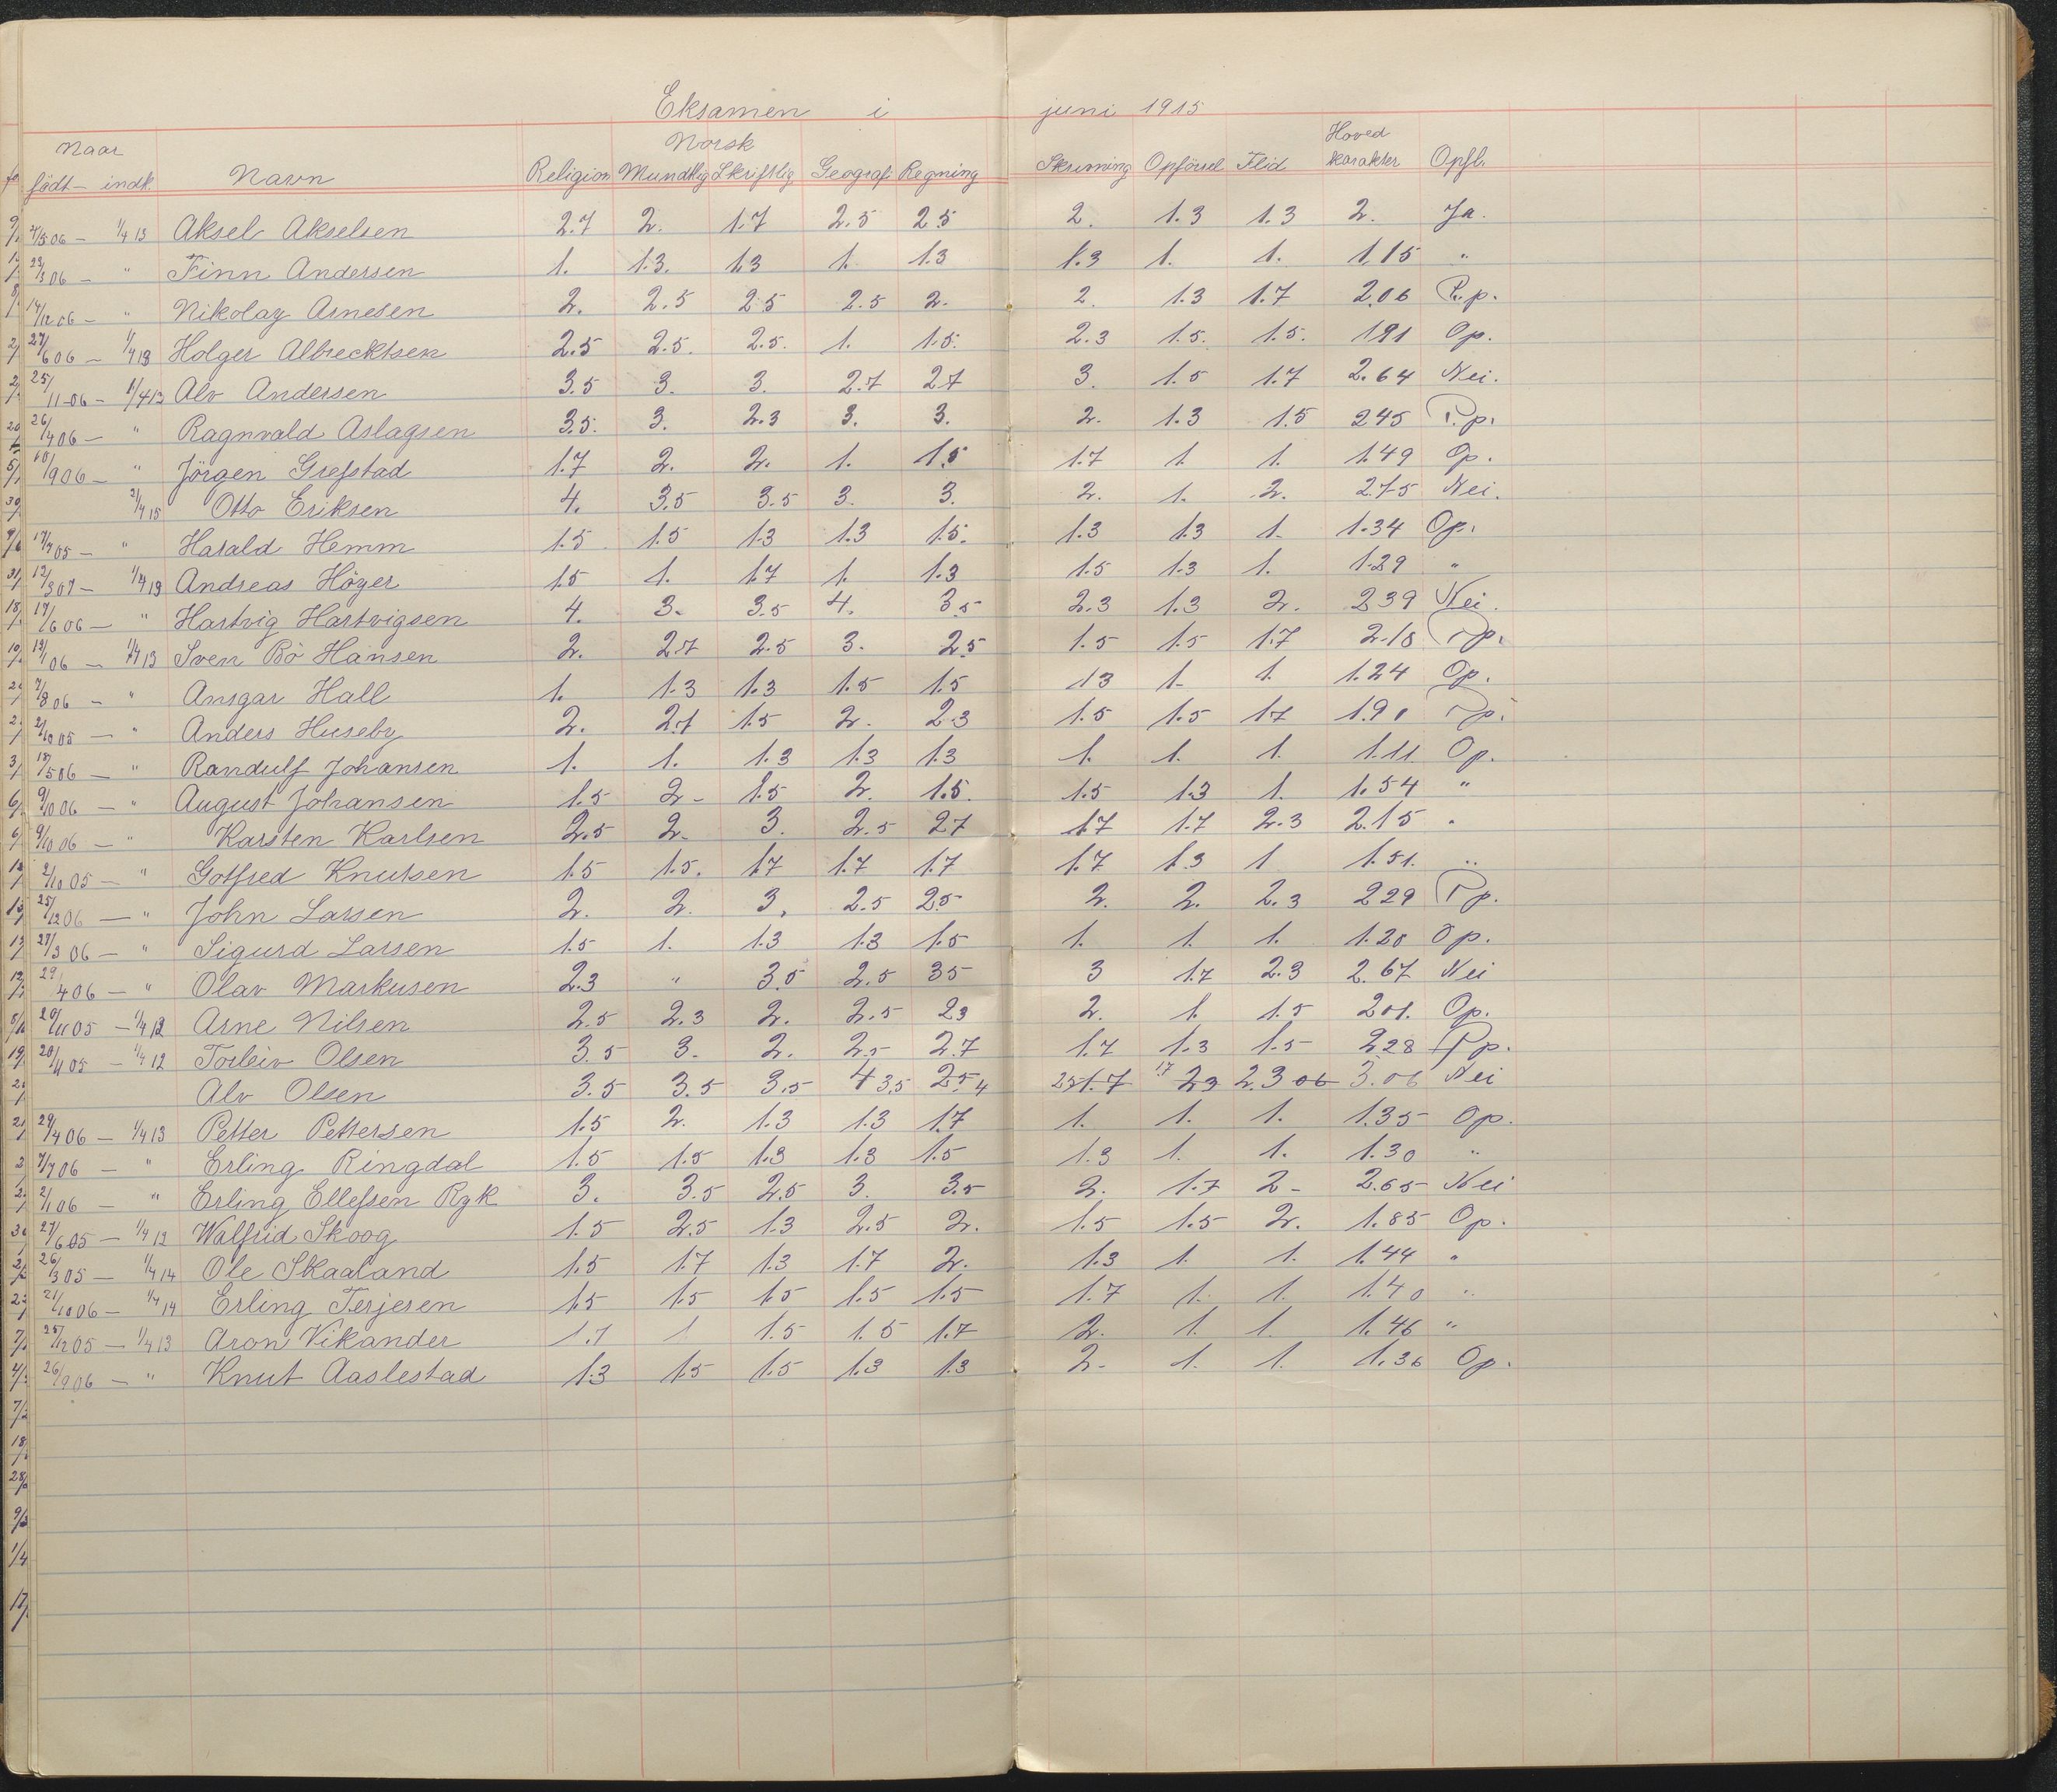 Eksamen i juni 1915
Naar Norsk Hoved
födt - indk. Navn Religion Mundtlig Skriftlig Geografi Regning Skrivning Opförsel Flid karakter Opfl.
4/5 06 - 1/4 13 Aksel Akselsen 2.7 2. 1.7 2.5 2.5 2. 1.3 1.3 2. Ja.
23/3 06 - " Finn Andersen 1. 1.3. 1.3 1. 1.3 1.3 1. 1. 1.15 "
14/12 06 - " Nikolay Arnesen 2. 2.5 2.5 2.5 2. 2. 1.3 1.7 2.06 P.p.
27/6 06 - 1/4 13 Holger Albrecktsen 2.5 2.5. 2.5. 1. 1.5. 2.3 1.5. 1.5. 1.91 Op.
25/11-06 - 1/4 13 Alv Andersen 3.5 3. 3. 2.7 2.7 3. 1.5 1.7 2.64 Nei.
26/4 06 - " Ragnvald Aslagsen 3.5. 3. 2.3 3. 3. 2. 1.3 1.5 2.45 P.p.
10/9 06 - " Jörgen Grefstad 1.7 2. 2. 1. 1.5 1.7 1. 1. 1.49 Op.
21/4 15 Otto Eriksen 4. 3.5 3.5 3. 3. 2. 1. 2. 2.75 Nei.
17/7 05 - " Harald Hemm 1.5 1.5 1.3 1.3 1.5. 1.3 1.3 1. 1.34 Op.
12/3 07 - 1/4 13 Andreas Höyer 1.5 1. 1.7 1. 1.3 1.5 1.3 1. 1.29 "
17/6 06 - " Hartvig Hartvigsen 4. 3. 3.5 4. 3.5 2.3 1.3 2. 2.39 Nei.
13/1 06 - 1/4 13 Sven Bö Hansen 2. 2.7 2.5 3. 2.5 1.5 1.5 1.7 2.18 P.p.
7/8 06 - " Ansgar Hall 1. 1.3 1.3 1.5 1.5 1.3 1. 1. 1.24 Op.
2/10 05 - " Anders Huseby 2. 2.7 1.5 2. 2.3 1.5 1.5 1.7 1.91 P.p.
18/5 06 - " Randulf Johansen 1. 1. 1.3 1.3 1.3 1. 1. 1. 1.11 Op.
9/10 06 - " August Johansen 1.5 2- 1.5 2. 1.5. 1.5 1.3 1. 1.54 "
9/10 06 - " Karsten Karlsen 2.5 2- 3. 2.5 2.7 1.7 1.7 2.3 2.15 "
2/10 05 - " Gotfred Knutsen 1.5 1.5. 1.7 1.7 1.7 1.7 1.3 1 1.51. "
25/12 06 - " John Larsen 2. 2. 3. 2.5 2.5 2. 2. 2.3 2.29 P.p.
27/3 06 - " Sigurd Larsen 1.5 1. 1.3 1.3 1.5 1. 1. 1. 1.20 Op.
29/4 06 - " Olav Markusen 2.3 " 3.5 2.5 3.5 3 1.7 2.3 2.67 Nei
20/11 05 - 1/4 12 Arne Nilsen 2.5 2.3 2. 2.5 2.3 2. 1. 1.5 2.01. Op.
20/11 05 - 1/4 12 Torleiv Olsen 3.5 3. 2. 2.5 2.7 1.7 1.3 1.5 2.28 P.p.
Alv Olsen 3.5 3.5 3.5 4 3.5 2.5 4 2.5 1.7 1.7 2.3 2.3 06 3.06 Nei
29/4 06 - 1/4 13 Petter Pettersen 1.5 2. 1.3 1.3 1.7 1. 1. 1. 1.35 Op.
7/7 06 - " Erling Ringdal 1.5 1.5 1.3 1.3 1.5 1.3 1. 1. 1.30 "
2/1 06 - " Erling Ellefsen Ryk 3. 3.5 2.5 3. 3.5 2. 1.7 2- 2.65 Nei
27/6 05 - 1/4 12 Walfrid Skoog 1.5 2.5 1.3 2.5 2. 1.5 1.5 2. 1.85 Op.
26/3 05 - 1/4 14 Ole Skaaland 1.5 1.7 1.3 1.7 2. 1.3 1. 1. 1.44 "
21/10 06 - 1/4 14 Erling Terjesen 1.5 1.5 1.5 1.5 1.5 1.7 1. 1. 1.40 "
25/12 05 - 1/4 13 Aron Vikander 1.7 1 1.5 1.5 1.7 2. 1. 1. 1.46 "
26/9 06 - " Knut Aaslestad 1.3 1.5 1.5 1.3 1.3 2- 1. 1. 1.36 Op.